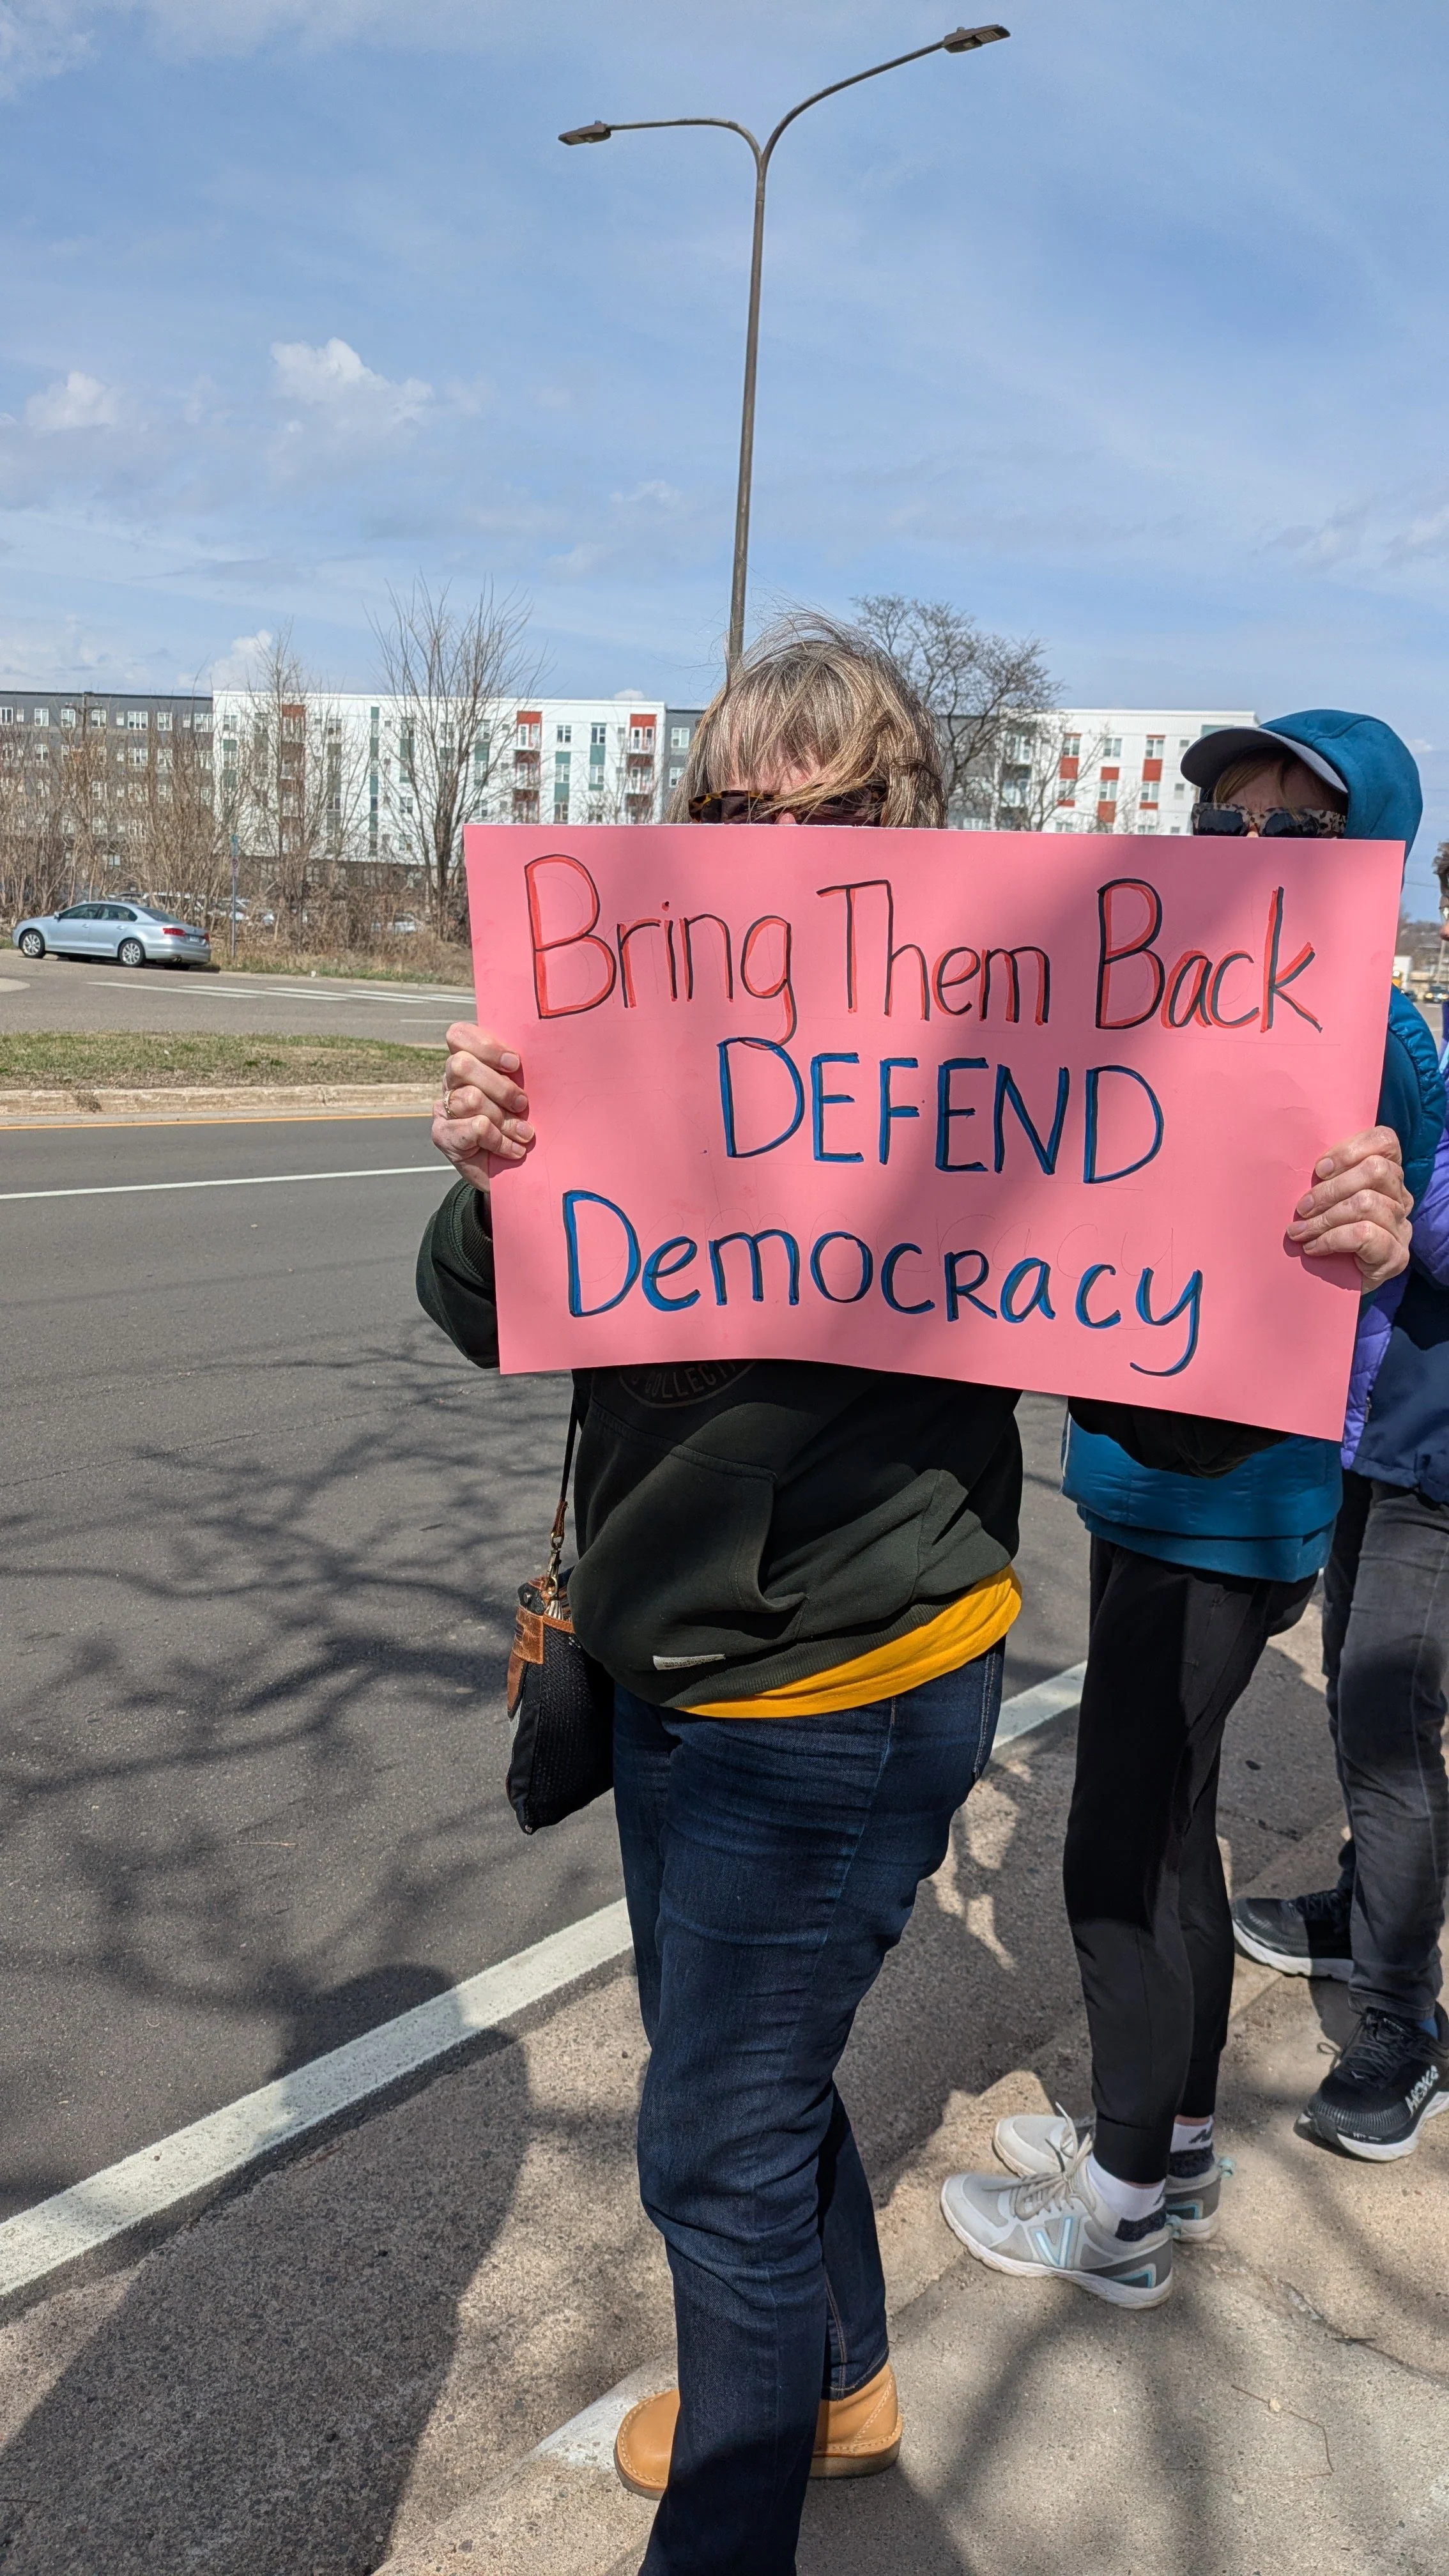 Bring Them Back
DEFEND
Democracy
COLLECT